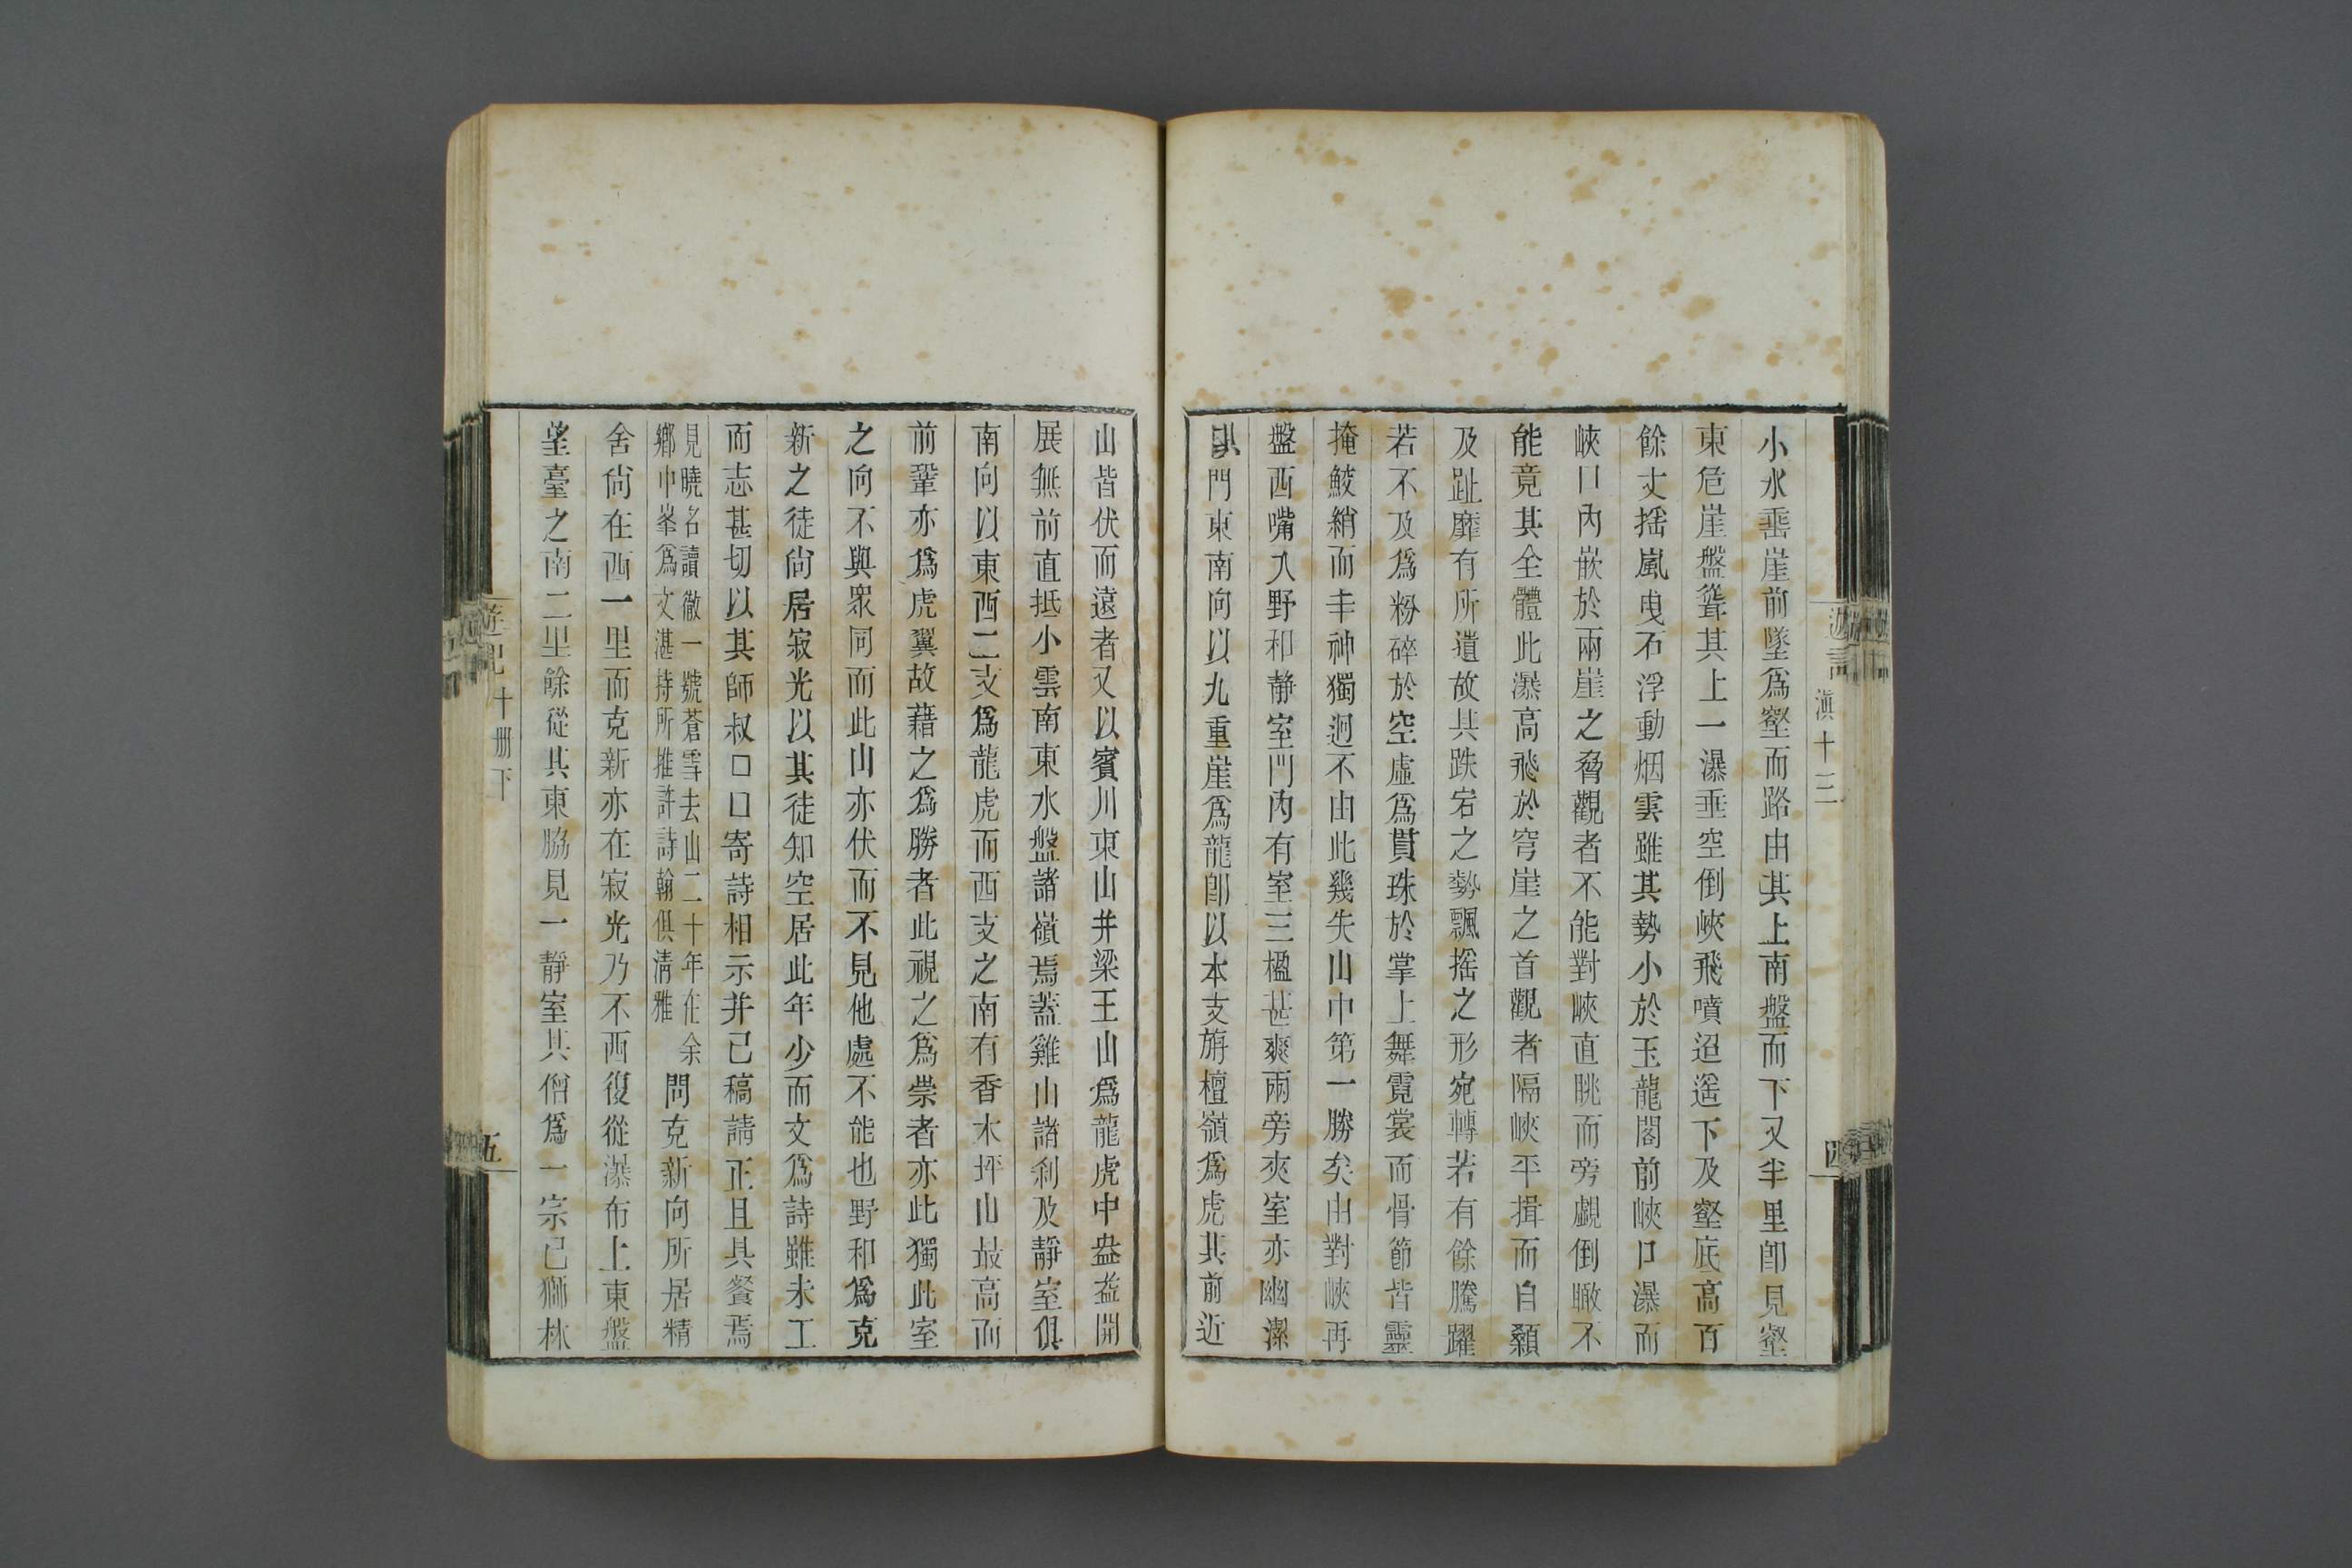 遊記 滇十三 四
小水垂崖前墜爲壑而路由其上南盤而下又半里卽見壑
東危崖盤聳其上一瀑垂空倒峽飛噴迢遥下及壑底高百
餘丈揺嵐曳石浮動烟雲雖其勢小於玉龍閣前峽口瀑而
峽口內嵌於兩崖之脅觀者不能對峽直眺而旁覷倒瞰不
能竟其全體此瀑高飛於穹崖之首觀者隔峽平揖而自顙
及趾靡有所遺故其跌宕之勢飄揺之形宛轉若有餘騰躍
若不及爲粉碎於空虛爲貫珠於掌上舞霓裳而骨節皆靈
掩鮫綃而丰神獨迥不由此幾失山中第一勝矣由對峽再
盤西嘴入野和靜室門內有室三楹甚爽兩旁夾室亦幽潔
門東南向以九重崖爲龍卽以本支旃檀嶺爲虎其前近
山皆伏而遠者又以賓川東山并梁王山爲龍虎中盎益開
展無前直抵小雲南東水盤諸嶺焉蓋雞山諸刹及靜室俱
南向以東西二支爲龍虎而西支之南有香木坪山最高而
前鞏亦爲虎翼故藉之爲勝者此視之爲祟者亦此獨此室
之向不與衆同而此山亦伏而不見他處不能也野和爲克
新之徒尙居寂光以其徒知空居此年少而文爲詩雖未工
而志甚切以其師叔口口寄詩相示并己稿請正且具餐焉
見曉名讀徹一號蒼雪去山二十年在余
鄉中峯爲文湛持所推許詩翰俱淸雅
問克新向所居精
舍尙在西一里而克新亦在寂光乃不西復從瀑布上東盤
望臺之南二里餘從其東脇見一靜室其僧爲一宗已獅林
遊記 十册下 五